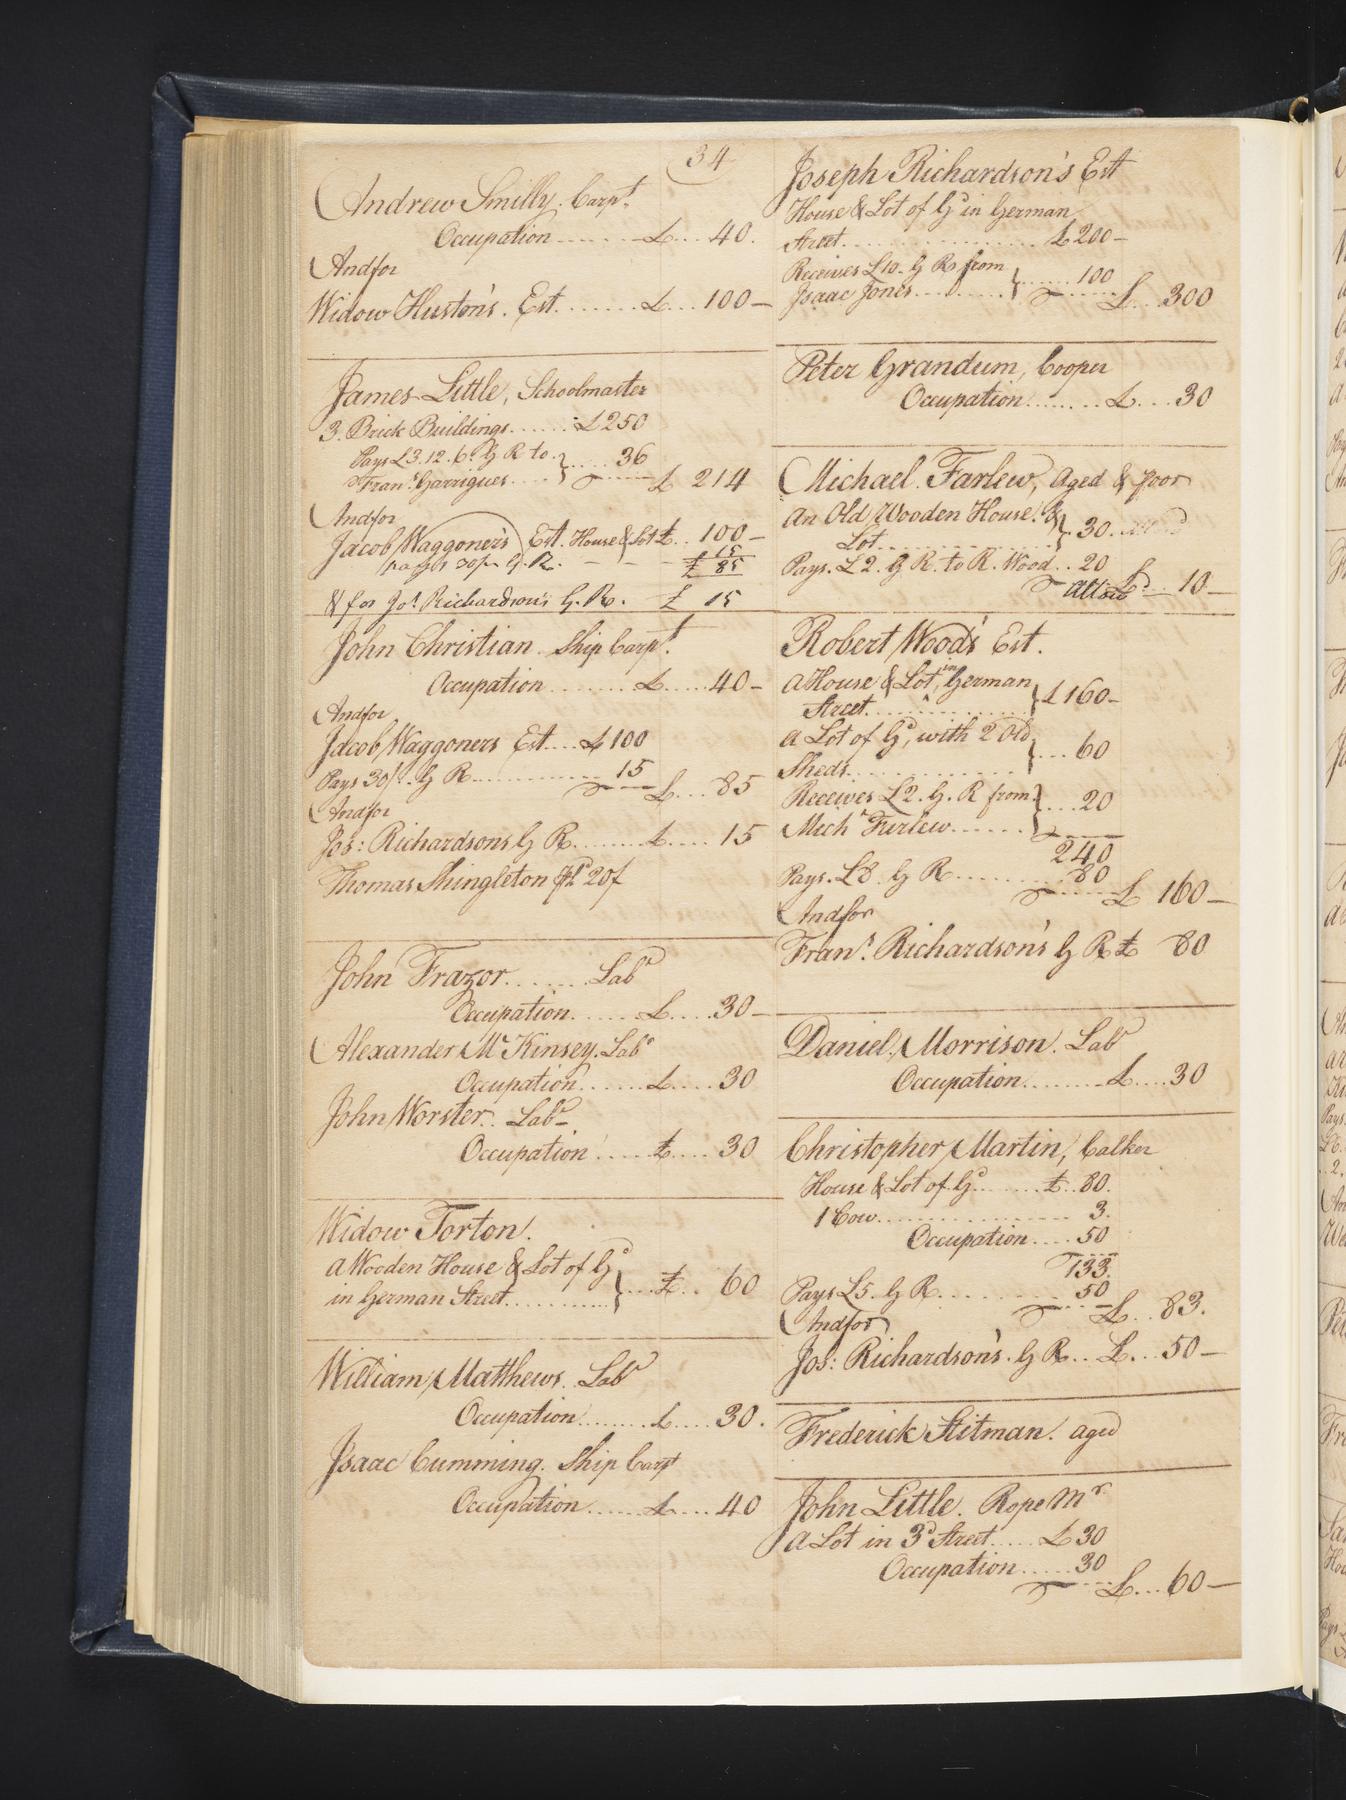 34
Andrew Smilly. Carpt.
Occupation £ 40.
And for
Widow Huston's. Est. £ 100
James Little, Schoolmaster
3. Brick Buildings £250
Pays £3.12.6. G R to
Frans. Garrigues 36
£ 214
And for
Jacob Waggoner's Est. House & Lot £ 100
pays 30/ G. R. 15
£ 85
& for Jos. Richardson's G. R. £ 15
John Christian. Ship Carpt.
Occupation £ 40
And for
Jacob Waggoners Est £100
Pays 30/. G R 15
£ 85
And for
Jos: Richardsons G R £ 15
Thomas Shingleton 20/
John Frazor Labr
Occupation £ 30
Alexander McKinsey. Labr
Occupation £ 30
John Worster. Labr
Occupation £ 30
Widow Torton.
a Wooden House & Lot of Gd
in German Street £ 60
William Matthews. Labr
Occupation £ 30.
Isaac Cumming. Ship Carpt
Occupation £ 40
Joseph Richardson's Est
House & Lot of Gd in German
Street £200
Receives £10. G R from
Isaac Jones 100
£ 300
Peter Grandum, Cooper
Occupation £ 30
Michael Farlew, aged & poor
an Old Wooden House &
Lot 30.
Pays. £2. G R. to R. Wood 20
£ 10
Robert Wood's Est.
a House & Lot, in German
Street £160
a Lot of Gd, with 2 Old
Sheds 60
Receives £2. G. R from
Mich. Furlew 20
240
Pays. £8. G R 80
£ 160
And for
Frans. Richardson's G R £ 80
Daniel Morrison. Labr
Occupation £ 30
Christopher Martin, Calker
House & Lot of Gd £ 80.
1 Cow 3.
Occupation 50
133.
Pays £5. G R 50
£ 83.
And for
Jos: Richardson's. G R £ 50
Frederick Stitman. aged
John Little. Rope Mr
a Lot in 3d Street £30
Occupation 30
£ 60